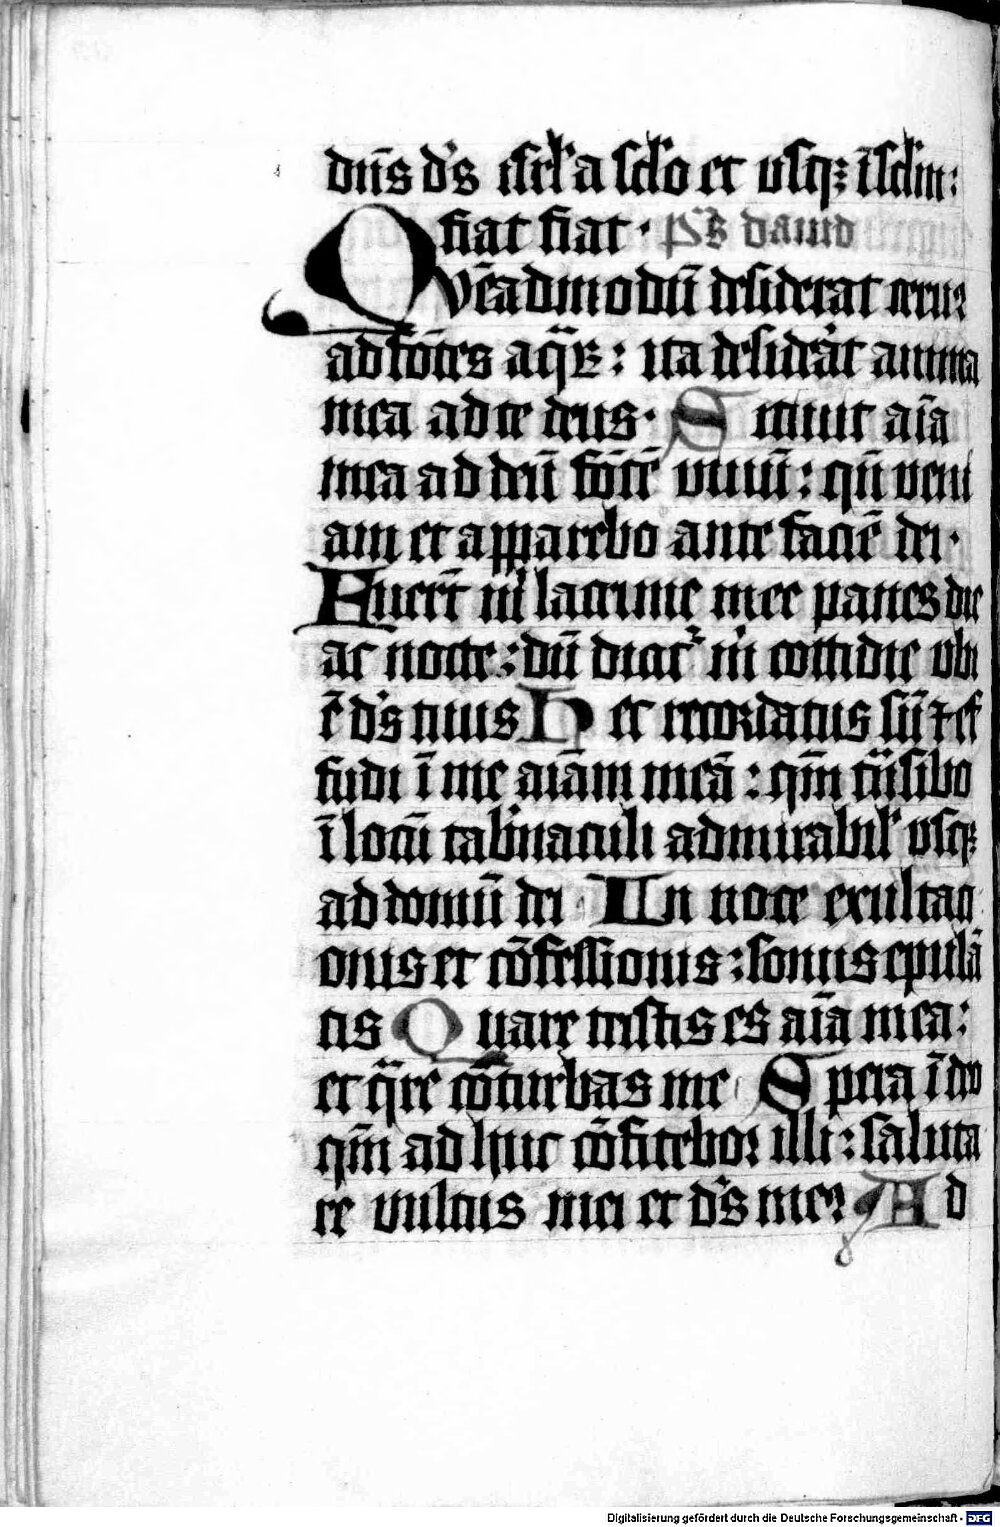 dn̄s ds̾ isrl̾ a sclo̾ et vsqꝫ ī scl̾m:
fiat fiat· Ps̾ dauid
Qvēadmodū desiderat ceruꝰ
ad fōtes aq̄ꝝ: ita desiderat anima
mea ad te deus· Sitiuit aīa
mea ad deū fōtē viuū: qn̄ veni
am et apparebo ante faciē dei·
Fuerūt m̾ lacrime mee panes die
ac nocte: dū dicit̾ m̾ cottidie vbi
ē ds̾ tuus Hec recordatus sū ⁊ ef
fudi ī me aīam meā: qm̄ trāsibo
ī locū tab̾naculi admirabil̾ vsqꝫ
ad domū dei In voce exultaci
onis et cōfessionis: sonus epulā
tis Quare tristis es aīa mea:
et q̄re cōturbas me Spera ī deo
qm̄ ad huc cōfitebor illi: saluta
re vultus mei et ds̾ meꝰ Ad
Digitalisierung gefördert durch die Deutsche Forschungsgemeinschaft - DFG